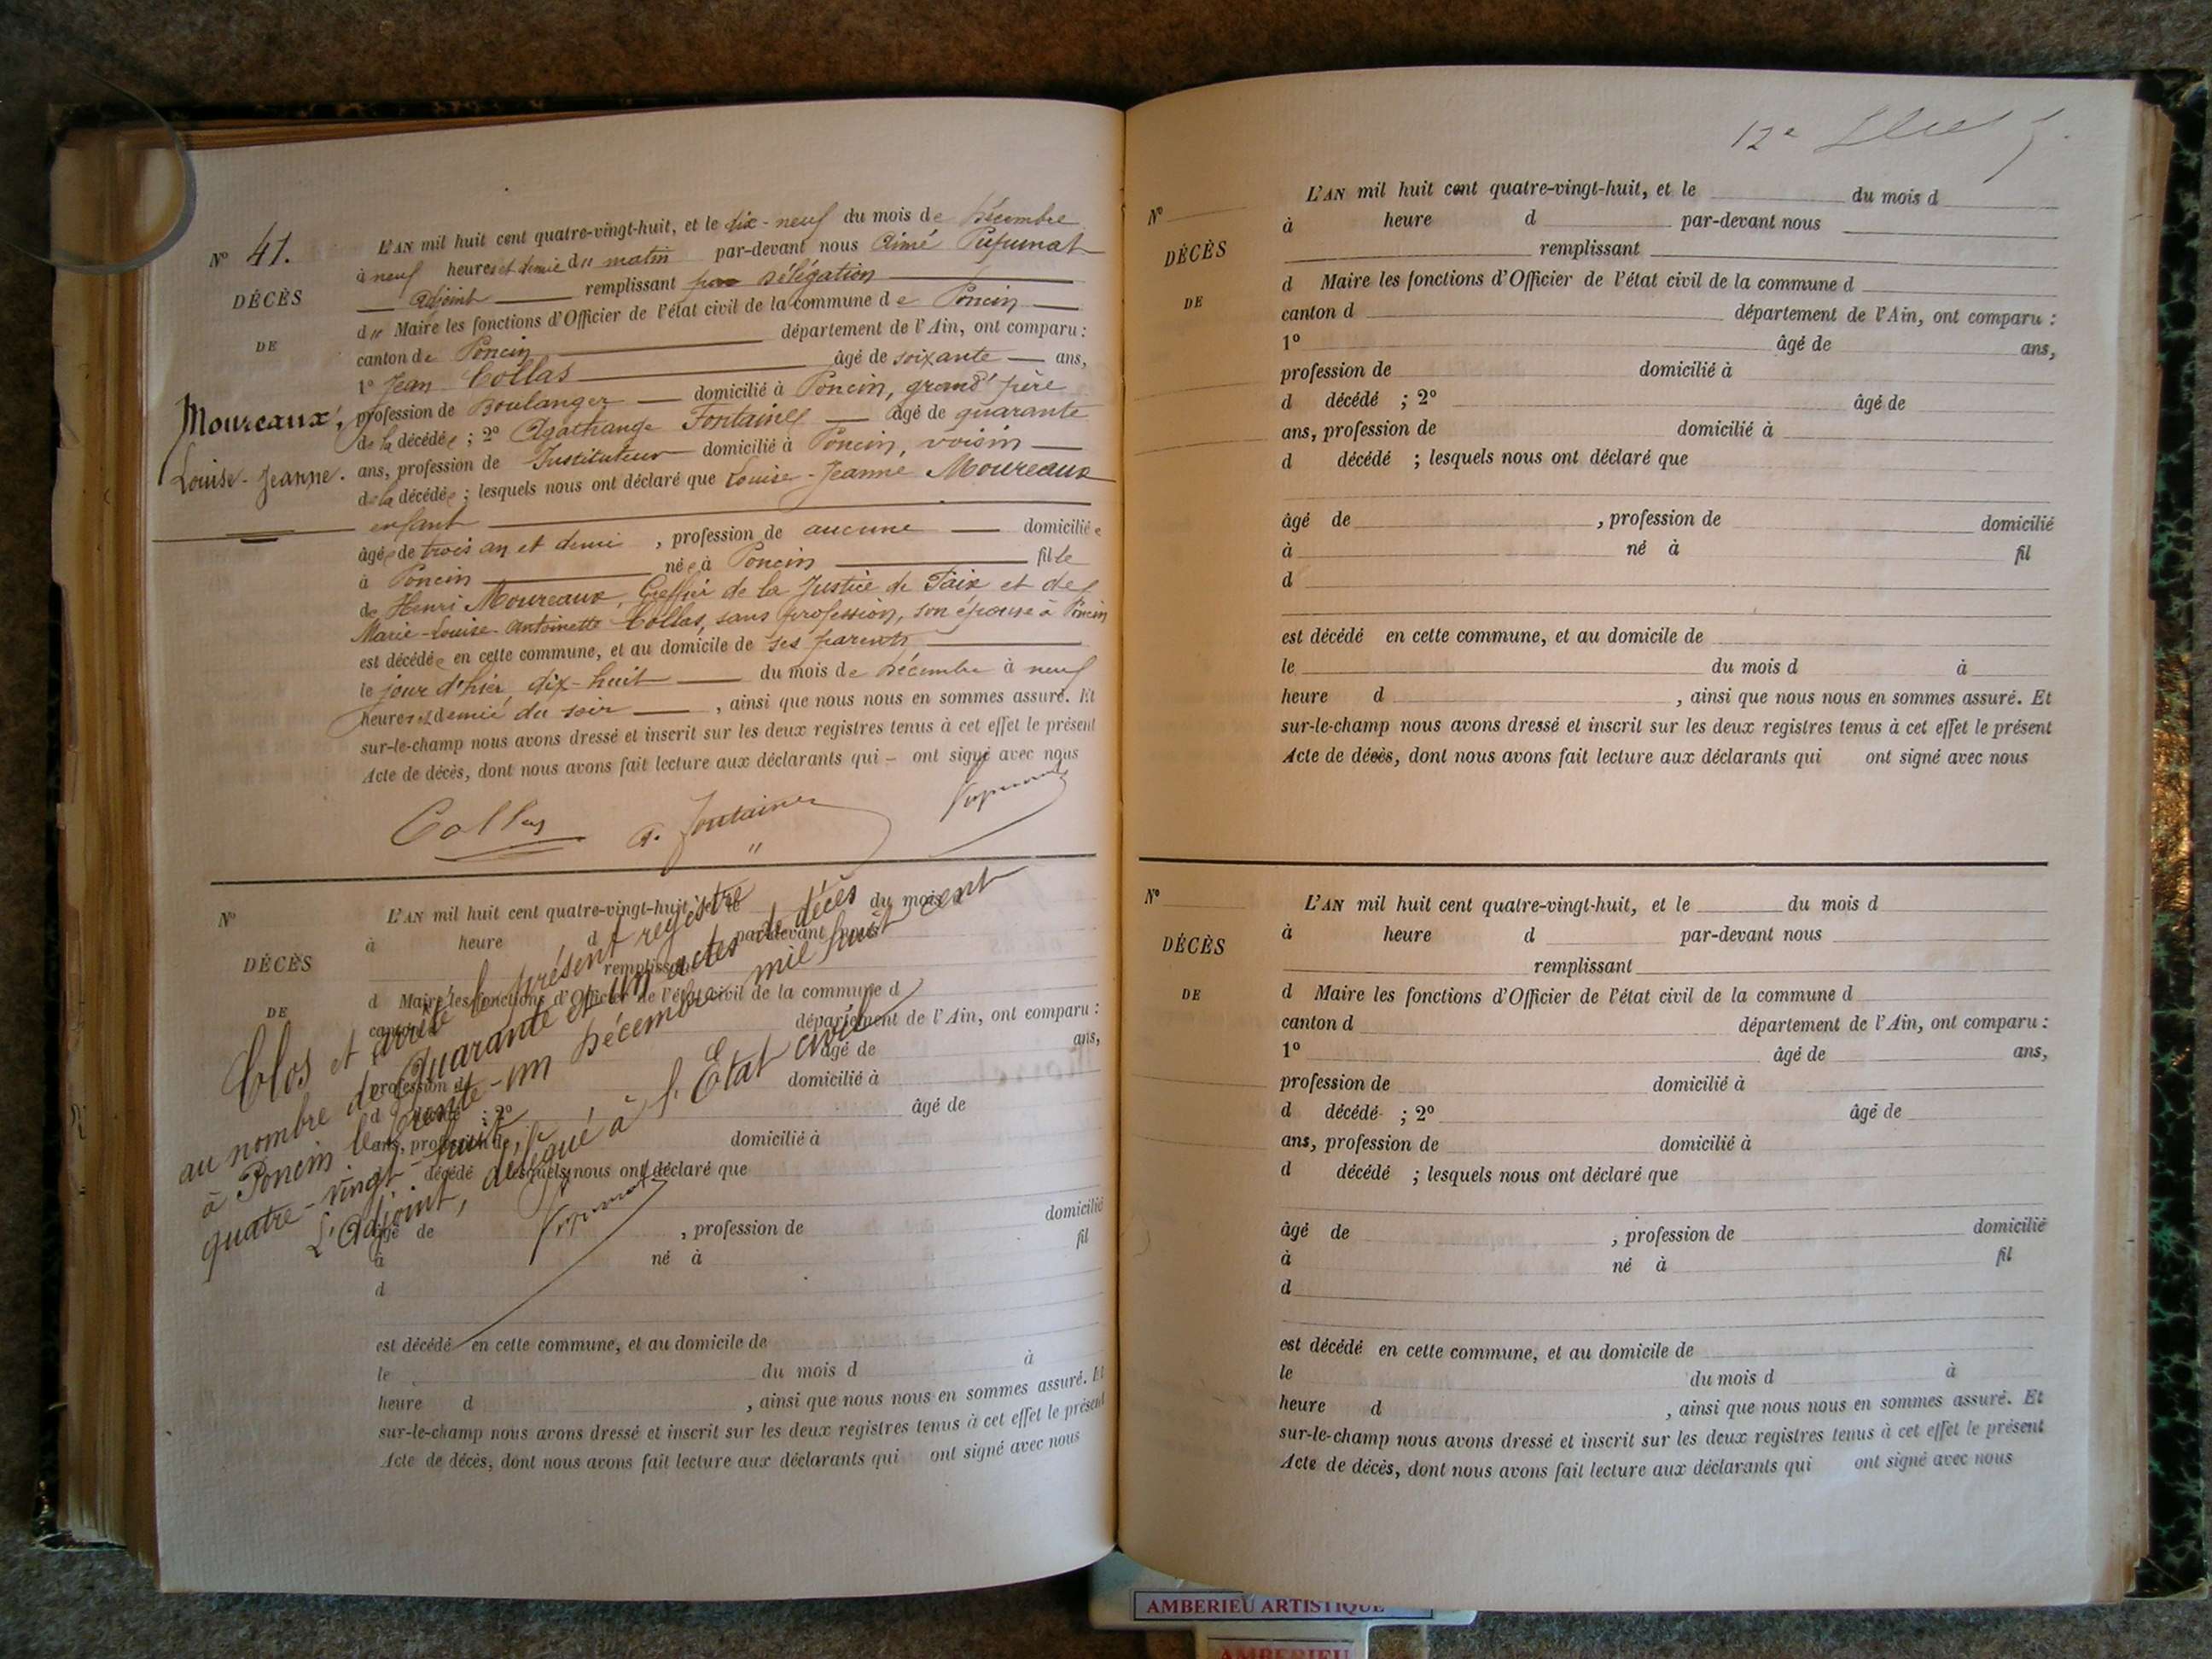 N° 41.
DÉCÈS
DE
Moureaux,
Louise-Jeanne.
L'AN mil huit cent quatre-vingt-huit, et le dix-neuf du mois de Décembre
à neuf heures et demie du matin par-devant nous Aimé
Adjoint remplissant par délégation
du Maire les fonctions d'Officier de l'état civil de la commune de Poncin
canton de Poncin département de l'Ain, ont comparu :
1° Jean Collas âgé de soixante ans,
profession de Boulanger domicilié à Poncin, grand'père
de la décédée ; 2° Agathange Fontaines âgé de quarante
ans, profession de Instituteur domicilié à Poncin, voisin
de la décédée ; lesquels nous ont déclaré que Louise-Jeanne Moureaux
enfant
âgée de trois an et demi , profession de aucune domiciliée
à Poncin née à Poncin fille
de Henri Moureaux, Greffier de la Justice de Paix et de
Marie-Louise-Antoinette Collas, sans profession, son épouse à Poncin
est décédée en cette commune, et au domicile de ses parents
le jour d'hier, dix-huit du mois de Décembre à neuf
heures et demie du soir , ainsi que nous nous en sommes assuré. Et
sur-le-champ nous avons dressé et inscrit sur les deux registres tenus à cet effet le présent
Acte de décès, dont nous avons fait lecture aux déclarants qui – ont signé avec nous
Collas A. Fontaines
N°
DÉCÈS
DE
L'AN mil huit cent quatre-vingt-huit, et le du mois
à heure d par-devant nous
remplissant
d Maire les fonctions d'Officier de l'état civil de la commune d
canton département de l'Ain, ont comparu :
âgé de ans,
profession de domicilié à
d décédé ; 2° âgé de
ans, profession de domicilié à
décédé lesquels nous ont déclaré que
âgé de , profession de domicilié
à né à fil
d
est décédé en cette commune, et au domicile de
le du mois d à
heure d , ainsi que nous nous en sommes assuré. Et
sur-le-champ nous avons dressé et inscrit sur les deux registres tenus à cet effet le présent
Acte de décès, dont nous avons fait lecture aux déclarants qui ont signé avec nous
Clos et arrêté le présent registre
au nombre de Quarante et un actes de décès
à Poncin le trente-un Décembre mil huit cent
quatre-vingt-huit,
L'Adjoint, délégué à l'Etat civil
12e
N°
DÉCÈS
DE
L'AN mil huit cent quatre-vingt-huit, et le du mois d
à heure d par-devant nous
remplissant
d Maire les fonctions d'Officier de l'état civil de la commune d
canton d département de l'Ain, ont comparu :
1° âgé de ans,
profession de domicilié à
d décédé ; 2° âgé de
ans, profession de domicilié à
d décédé ; lesquels nous ont déclaré que
âgé de , profession de domicilié
à né à fil
d
est décédé en cette commune, et au domicile de
le du mois d à
heure d , ainsi que nous nous en sommes assuré. Et
sur-le-champ nous avons dressé et inscrit sur les deux registres tenus à cet effet le présent
Acte de décès, dont nous avons fait lecture aux déclarants qui ont signé avec nous
N°
DÉCÈS
DE
L'AN mil huit cent quatre-vingt-huit, et le du mois d
à heure d par-devant nous
remplissant
d Maire les fonctions d'Officier de l'état civil de la commune d
canton d département de l'Ain, ont comparu :
1° âgé de ans,
profession de domicilié à
d décédé ; 2° âgé de
ans, profession de domicilié à
d décédé ; lesquels nous ont déclaré que
âgé de , profession de domicilié
à né à fil
d
est décédé en cette commune, et au domicile de
le du mois d à
heure d , ainsi que nous nous en sommes assuré. Et
sur-le-champ nous avons dressé et inscrit sur les deux registres tenus à cet effet le présent
Acte de décès, dont nous avons fait lecture aux déclarants qui ont signé avec nous
AMBERIEU ARTISTIQUE
AMBERIEU